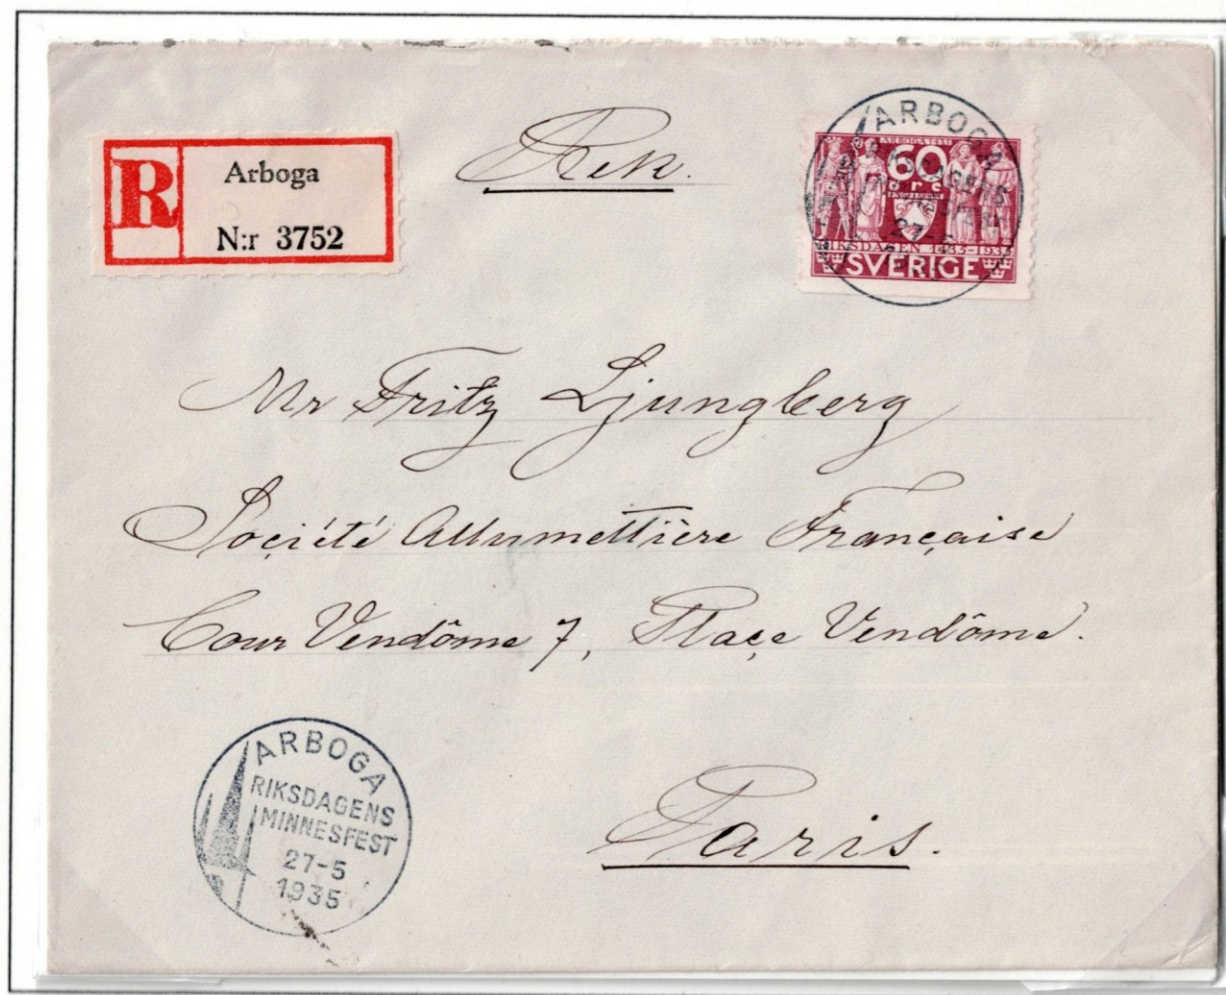 Rek.
R
Arboga
N:r 3752
ARBOGA 1435
60
öre
RIKSDAGEN 1435-1935
SVERIGE
ARBOGA
RIKSDAGENS
27
Mr Fritz Ljungberg
Société Allumettière Française
Cour Vendôme 7, Place Vendôme.
Paris.
ARBOGA
RIKSDAGENS
MINNESFEST
27-5
1935